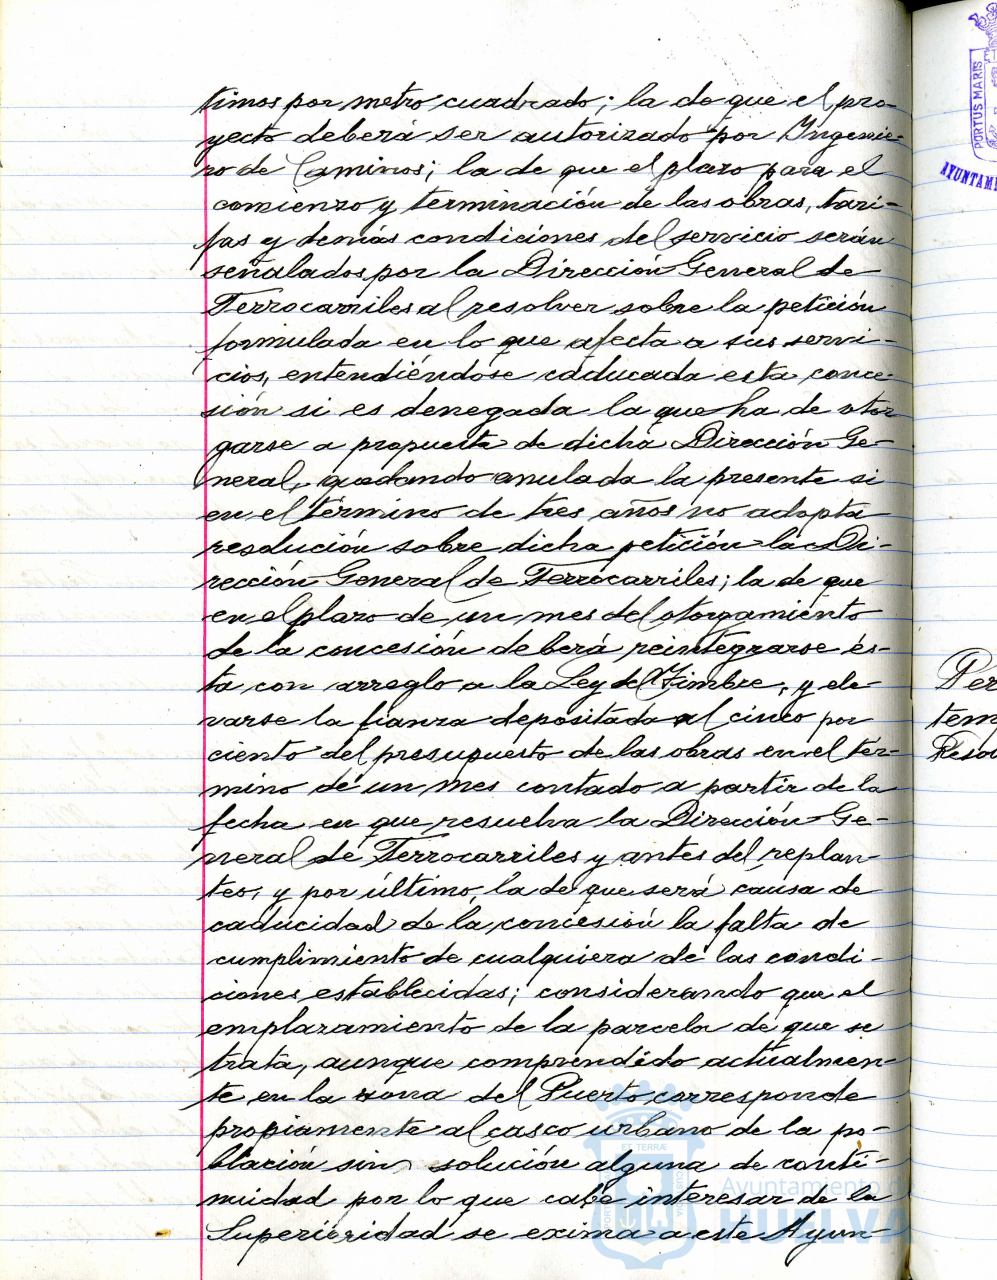 timos por metro cuadrado; la de que el pro-
yecto deberá ser autorizado por Ingenie-
ro de Caminos; la de que el plazo para el
comienzo y terminación de las obras, tari-
fas y demás condiciones del servicio serán
señalados por la Dirección General de
Ferrocarriles al resolver sobre la petición
formulada en lo que afecta a sus servi-
cios, entendiéndose caducada esta conce-
sión si es denegada la que ha de otor
garse a propuesta de dicha Dirección Ge-
neral, quedando anulada la presente si
en el término de tres años no adopta
resolución sobre dicha petición la Di-
rección General de Ferrocarriles; la de que
en el plazo de un mes del otorgamiento
de la concesión deberá reintegrarse és-
ta con arreglo a la Ley del Timbre, y ele-
varse la fianza depositada al cinco por
ciento del presupuesto de las obras en el tér-
mino de un mes contado a partir de la
fecha en que resuelva la Dirección Ge-
neral de Ferrocarriles y antes del replan-
teo; y por último, la de que será causa de
caducidad de la concesión la falta de
cumplimiento de cualquiera de las condi-
ciones establecidas; considerando que el
emplazamiento de la parcela de que se
trata, aunque comprendido actualmen-
te en la zona del Puerto corresponde
propiamente al casco urbano de la po-
blación sin solución alguna de conti-
nuidad por lo que cabe interesar de la
Superioridad se exima a este Ayun-
PORTUS MARIS
AYUNTAMI
Per
tem
Resol
ET TERRÆ
Ayuntamiento de
HUELVA